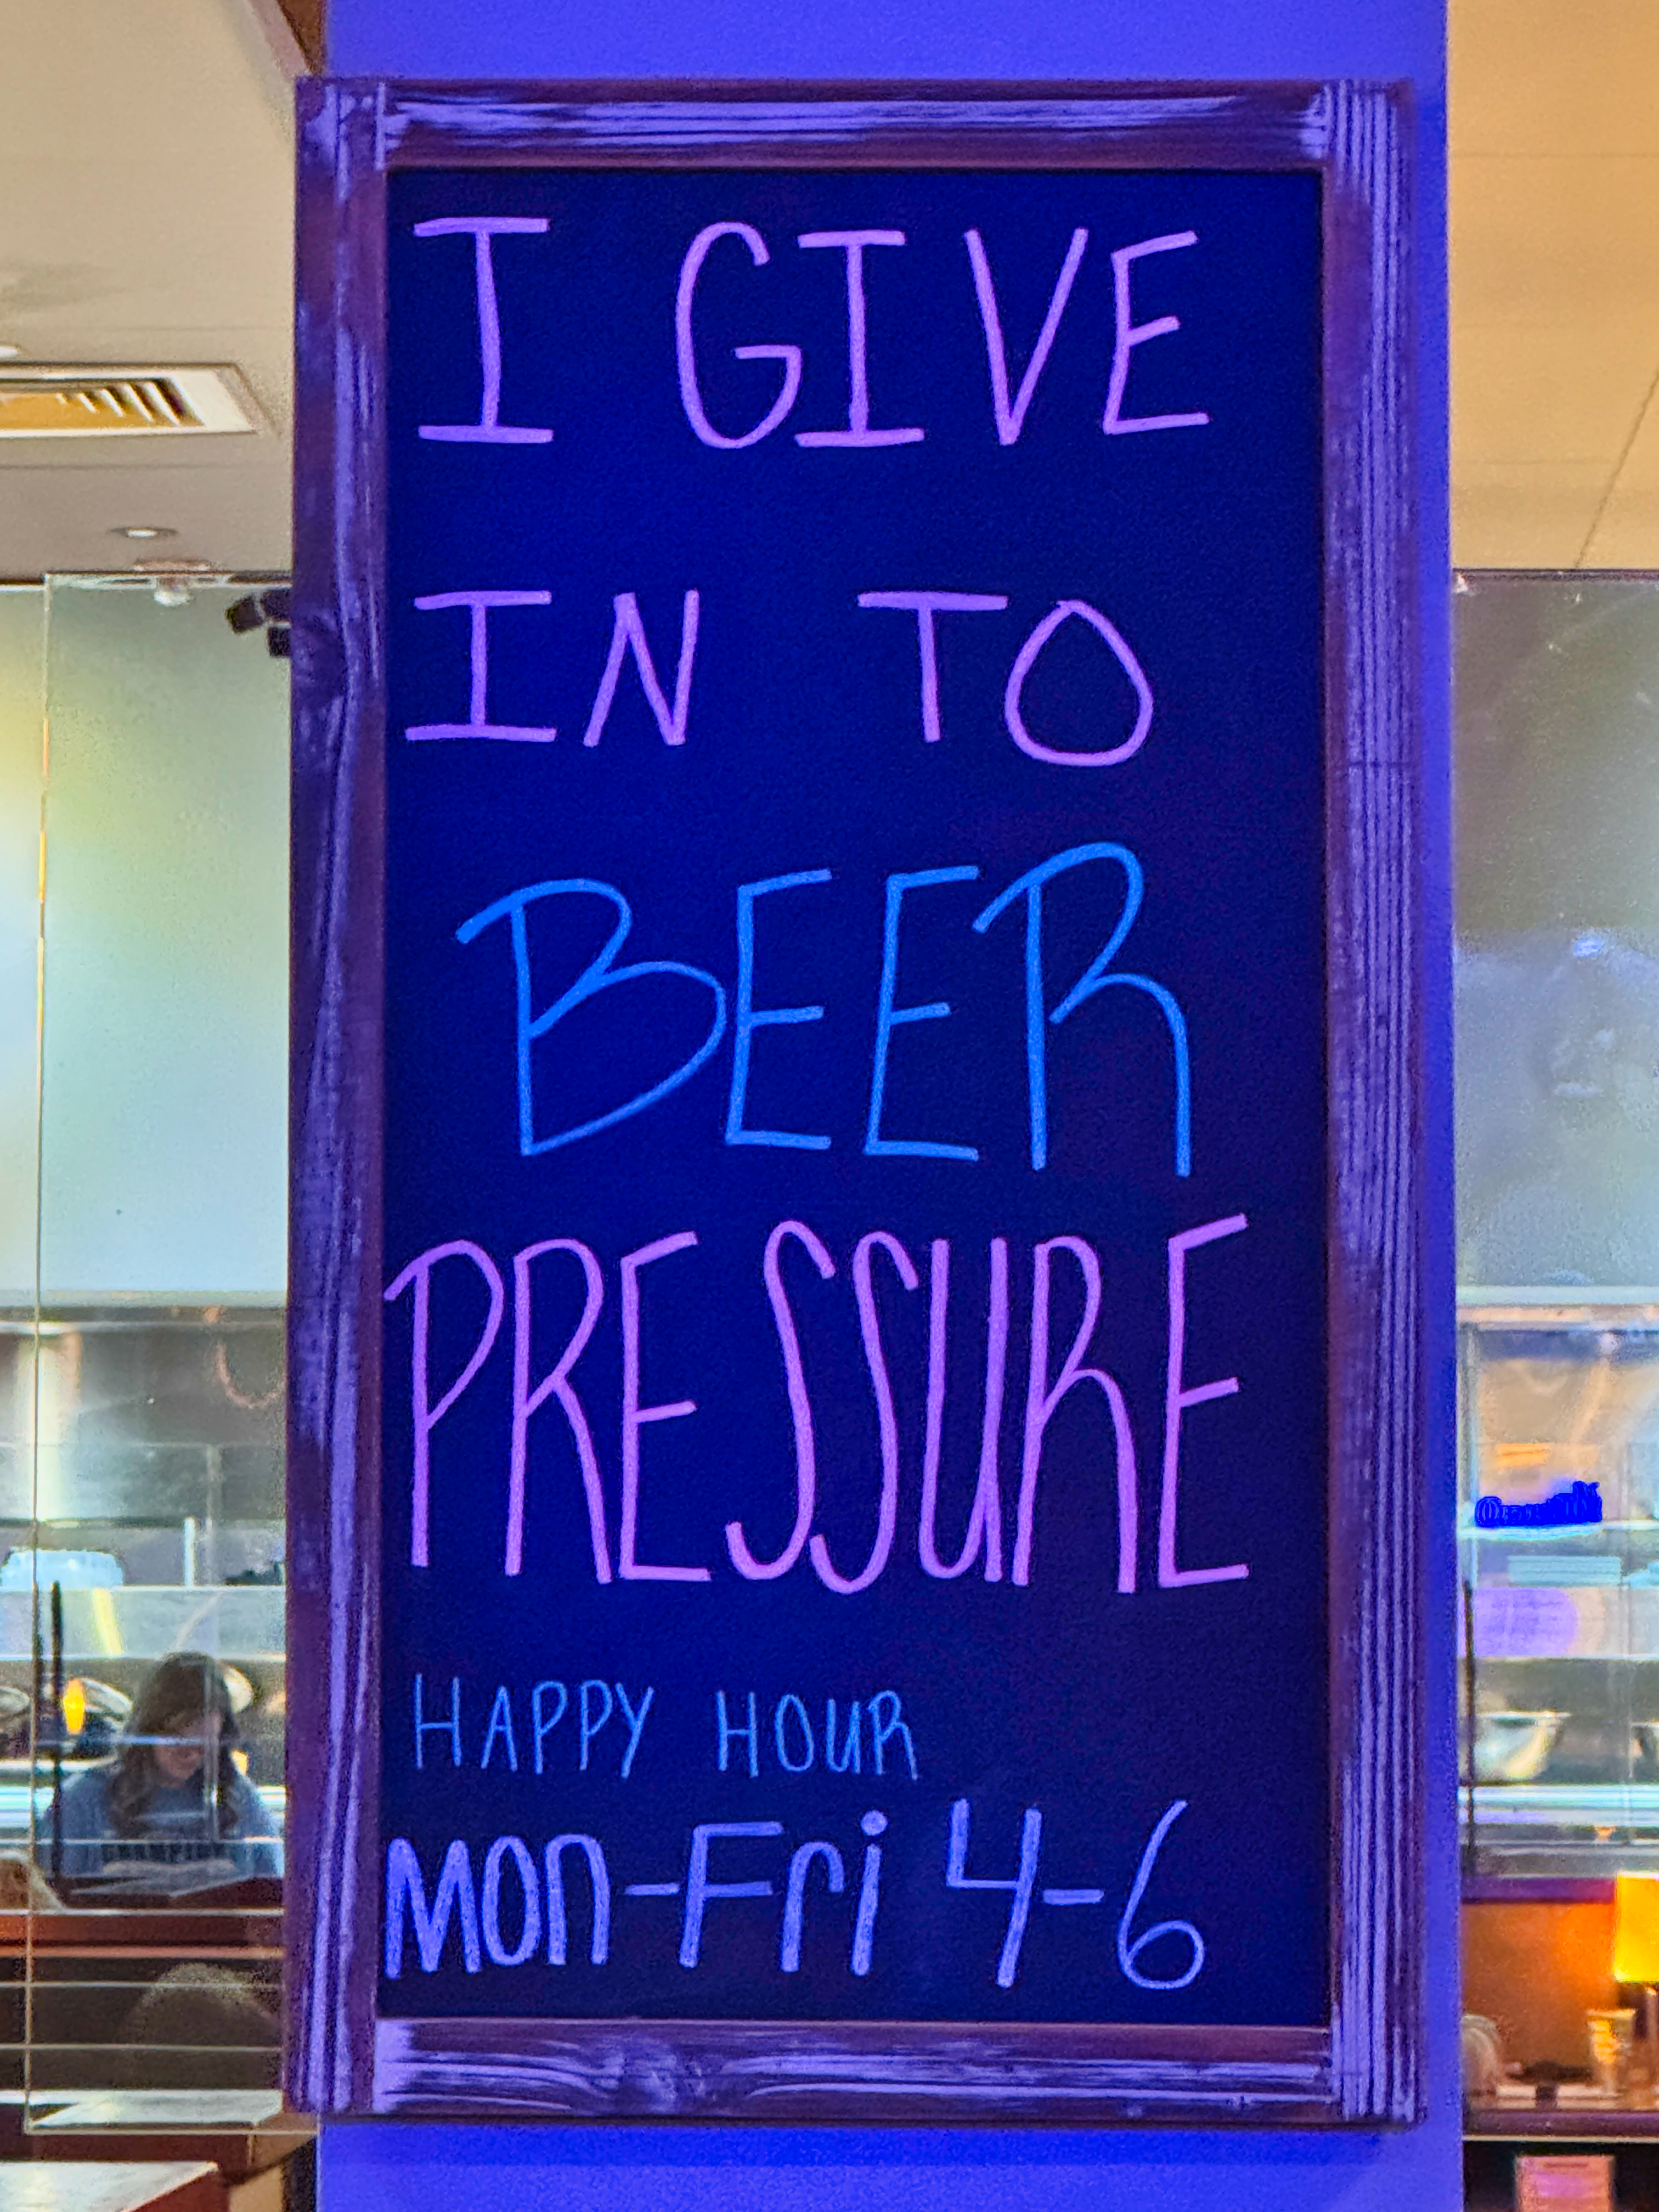 I GIVE
IN TO
BEER
PRESSURE
HAPPY HOUR
Mon-Fri 4-6